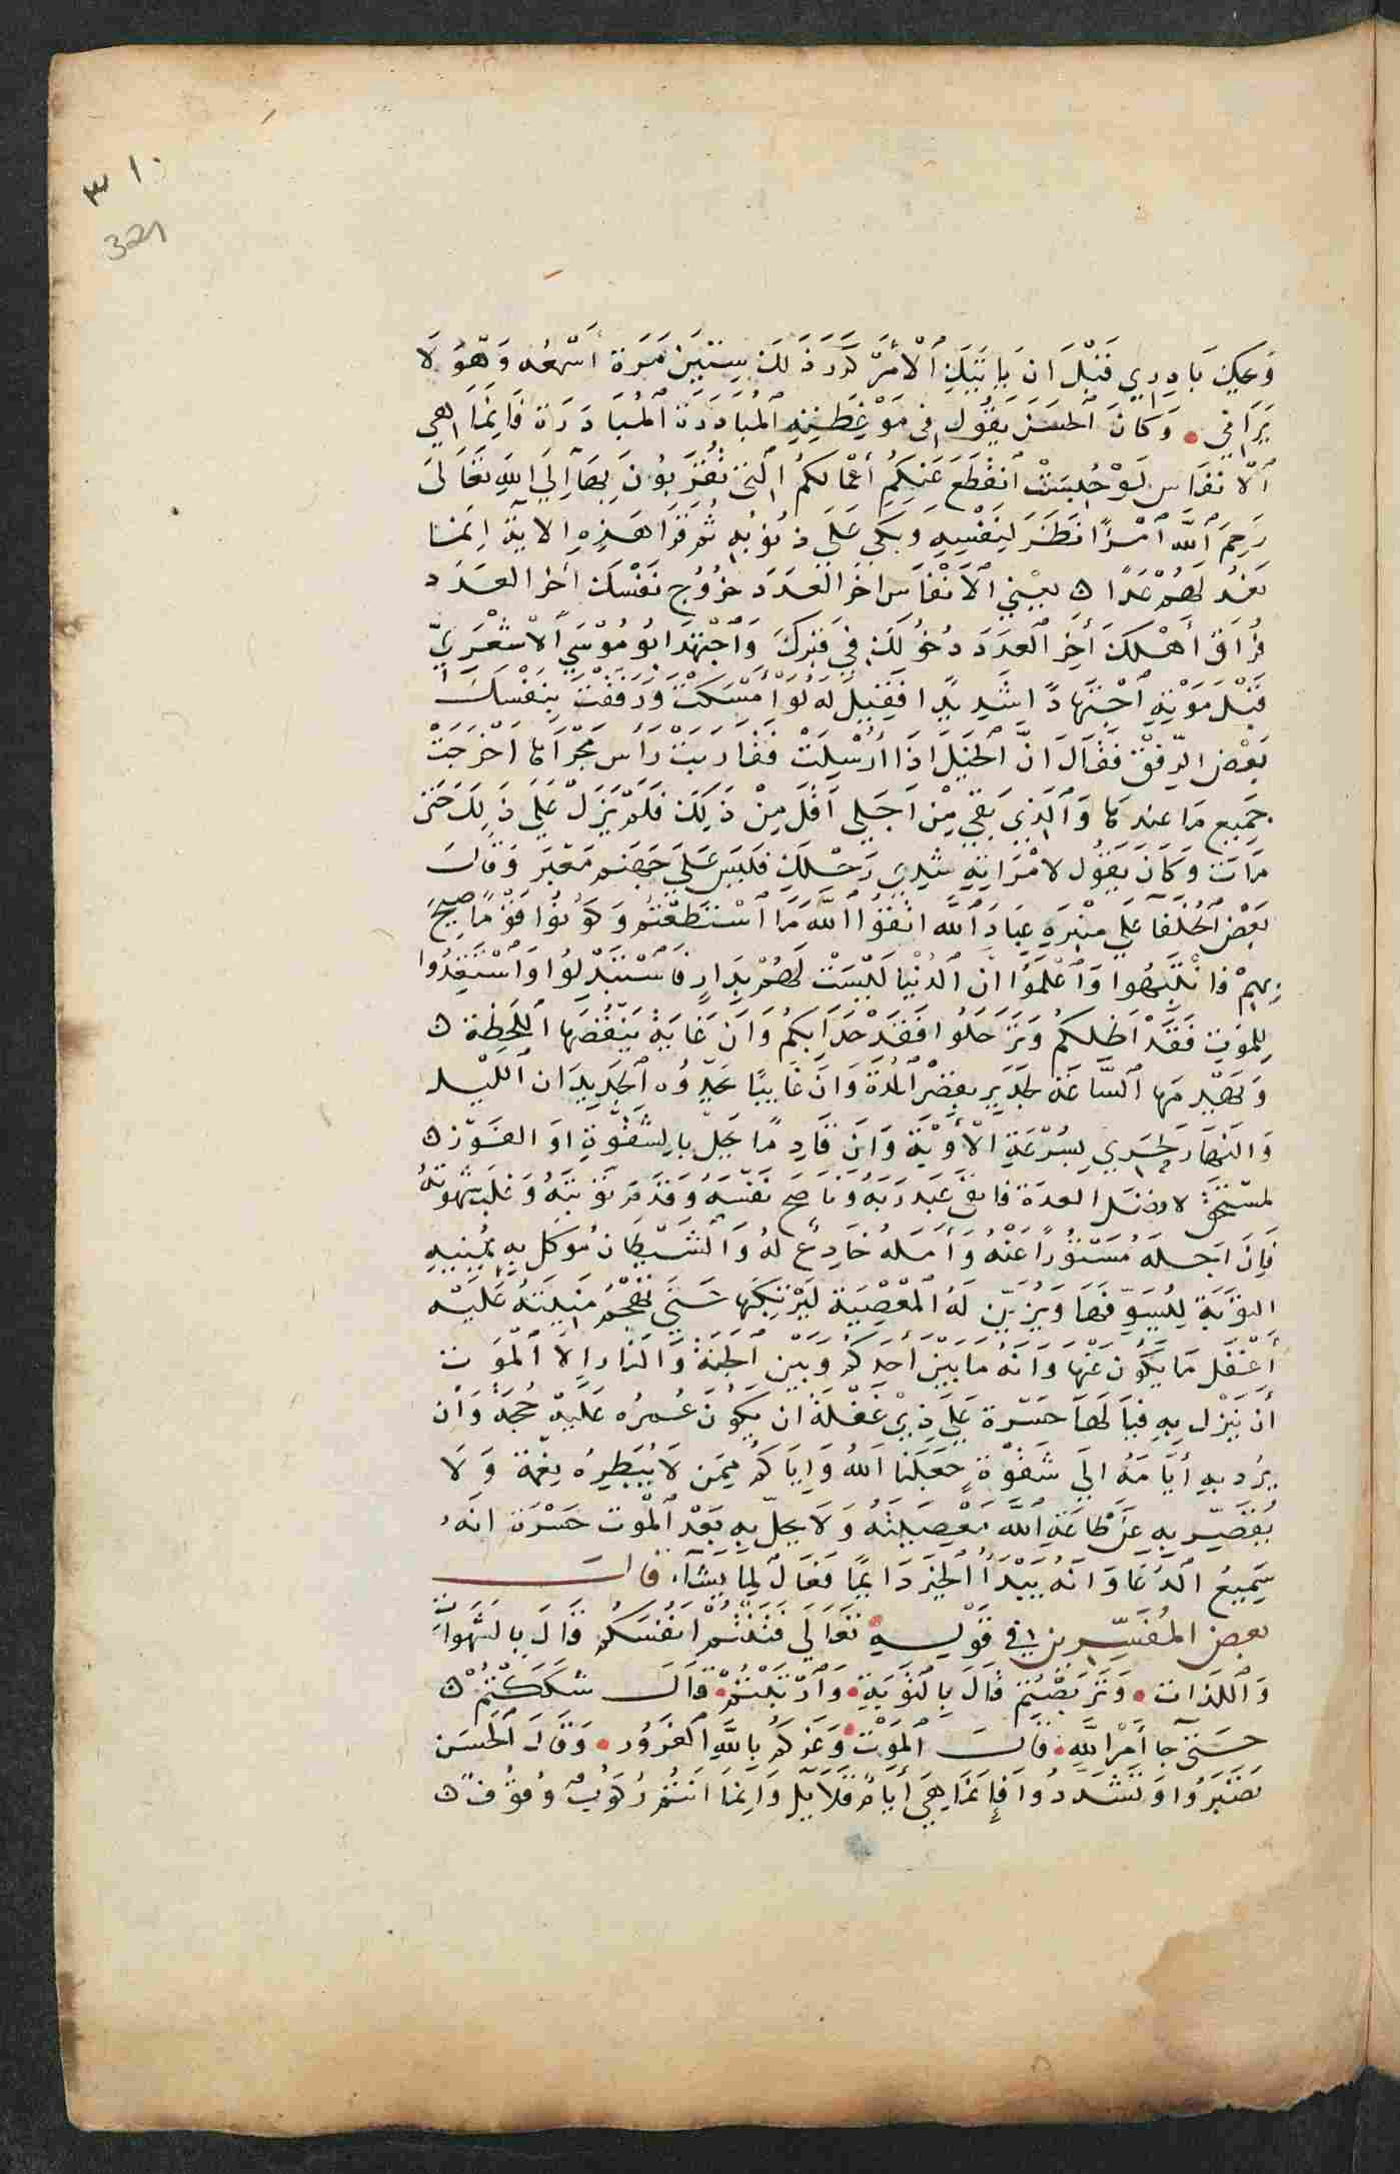 ٣١٠
321
وَيحكِ بَادِرِي قَبْلَ ان يَاتيكِ الأمْر كَرر ذَلكَ سِتّينَ مَرة اسْمعُه وَهُوَ لَا
يَرَاني ٠ وَكانَ الحسَن يَقُول في مَوْعِظَتِهِ المُبَادَرَة المُبَادَرَة فَانِمَا هي
الأنفَاس لَوْ حُبِسَتْ انقَطَعَ عَنكُم أعْمَالكُم التي تُقَرّبُونَ بِهَا إلي اللهِ تَعَالىَ
رَحِمَ اللّه امْرًا نَظَرَ لِنَفْسِهِ وَبَكي عَلَي ذنُوبِهِ ثُمَّ قَرَا هَذِهِ الاَيَة اِنمَا
نَعُد لَهُمْ عَدًا ه يَعْنِي الأَنْفَاس اخَر العَدَد خرُوج نَفْسكَ أخر العَدَد
فِرَاق أهْلكَ أخِر العَدَدَ دُخُولكَ فِي قَبْركَ وَاجْتَهَدَ ابُو مُوْسَي الأشْعَريّ
قَبْلَ مَوْتِهِ اجْتِهَادًا شَدِيدًا فَقِيْلَ لَهُ لَوْ أمْسَكتْ وَرَفَقْتَ بِنَفْسكَ
بَعْض الرّفِقْ فَقَالَ انَّ الخَيلَ اذَا أُرْسِلَتْ فَقَارَبَتْ رَأسَ مَجْرَاهَا اَخْرَجَتْ
جَمِيع مَا عِندَهَا وَالَّذِي بَقِي مِنْ اجَلِي أقَل مِنْ ذَلِكَ فَلَمْ يَزَلْ عَلَى ذَلِكَ حَتى
مَاتَ وَكَانَ يَقُول لامْرَاتِهِ شِدِي رَحْلكِ فَليسَ عَلَي جَهَنم مَعْبَر وَقَالَ
بَعْض الخُلَفا عَلي مِنْبَرِهِ عِبَادَ اللَّه اتَّقُوا اللَّه مَا اسْتَطَعْتُم وَكُونُوا قَوْمًا صِيحَ
بِهِمْ فانْتَبَهُوا وَاعْلَمُوا انّ الدُنْيَا لَيْسَتْ لَهُمْ بِدَارٍ فَاسْتَبْدِلُوا وَاسْتَعِدُوا
لِلمَوتِ فَقَدْ اَظلكُم وَتَرَحَلُوا فَقَدْ جَدَّ بِكُم وَانَ غَايَةً تَنْقُصُهَا اللَّحْظَة ه
وَتَهْدِمَها السَّاعَة لجَدِيرَةٌ بِقِصَرِ المُدَة وَانَ غَايِبًا يَحْدُوه الجَدِيدَان الليْل
وَالنَهَار لحَرِي بِسُرْعَةِ الأَوْبَة وَانَ قَادِمًا يحلّ بِالشَّقْوَةِ اوِ الفَوْز ه
لمسْتَحِق لافضَل العدّة فَاتقَى عَبد رَبَهُ وَنَاصَحَ نَفْسَهُ وَقَدَمَ تَوْبَتَهُ وَغَلَبَ شَهْوَتَهُ
فَانَ اجَلهُ مَسْتُورًا عَنْهُ وَأَمَلهُ خَادِع لهُ وَالشَيْطَان مُوَكَل بِهِ يُمنِيهِ
التوْبَة لِيُسَوِّفَهَا وَيُزَيّنِ لَهُ المَعْصِيَة لِيَرْتَكِبَهَا حَتي تهْجُم مَنيتهُ عَلَيْه
أغْفَل مَا يَكُون عَنْهَا وَانَهُ مَا بَيْنَ أحَدكم وَبَيْن الجَنَة وَالنَار الا المَوت
أنْ يَنْزل بِهِ فيَا لَهَا حَسْرة عَلَي ذِي غَفْلَة ان يَكُونَ عُمرُه عَلَيْه حُجَة وَانْ
تُرديهِ أيَامَهُ الي شَقْوَةٍ جَعَلنَا اللهُ وَاِيَاكُم مِمَن لَا تُبْطِرهُ نِعْمَة وَلَا
تُقَصِّر بِهِ عَن طَاعَةِ اللّه مَعْصِيَتَهُ وَلَا يحلّ بِهِ بَعْد المَوْت حَسْرَة انَهُ
سَمِيعُ الدُّعَا وَانَهُ بِيَدِهِ الخيْر دَايِمًا فَعَال لِمَا يَشَآ. قال
بعض المُفَسِّرِين في قَوْلهِ تَعَالي فَتَنْتُمْ انفُسَكُم قَالَ بِالشَهْوَاتِ
وَاللّذَات ٠ وَتَرَبَصْتُم قَالَ بِالتَوْبَةِ ٠ وَارْتَبْتُمْ ٠ قَالَ شكَكْتُمْ ه
حَتى جا أمْر اللَّهِ ٠ قَالَ المَوْتْ ٠ وَغَركم بِاللّهِ الغَرُور ٠ وَقَالَ الحَسَن
تَصَبَّرُوا وَتَشَدّدُوا فإِنمَا هِيَ أيَامٌ قَلَايِل وَاِنمَا انتُمْ رُكُوبٌ وُقُوْفٌ ه